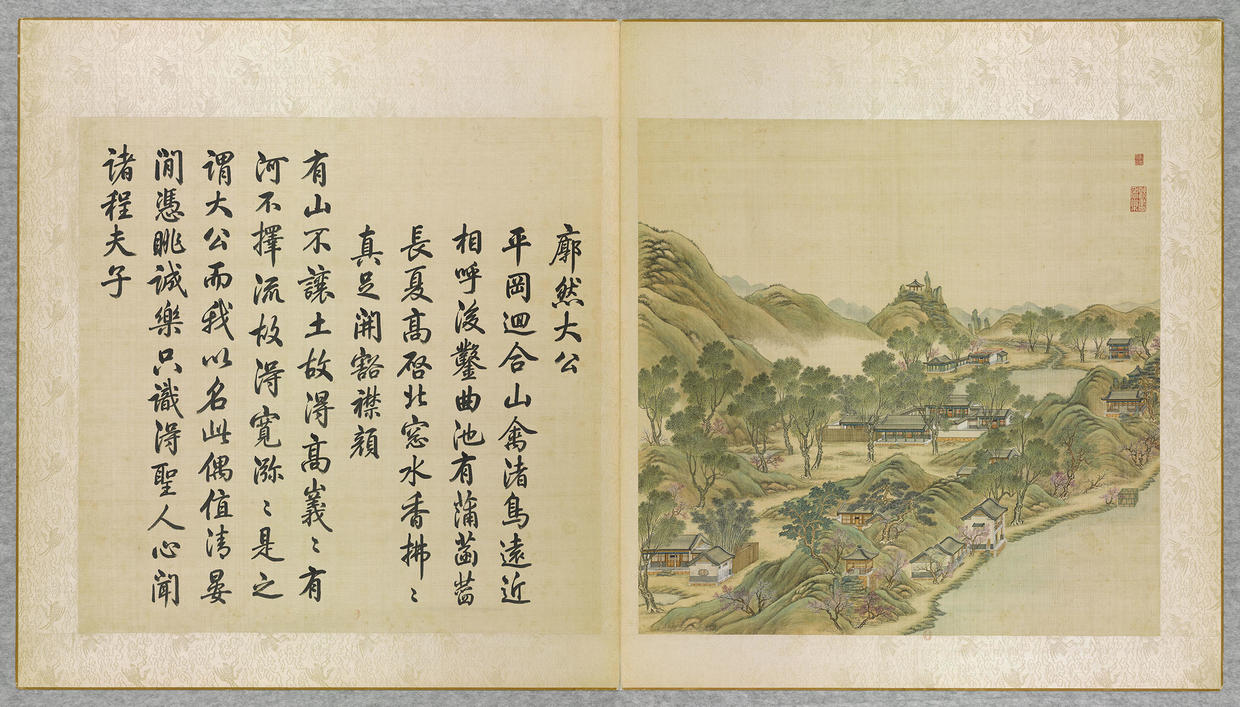 廓然大公
平岡迴合山禽渚鳥遠近
相呼後鑿曲池有蒲菡萏
長夏高啓北窓水香拂〻
真足開豁襟顔
有山不讓土故得高嶬〻有
河不擇流故得寬瀰〻是之
謂大公而我以名此偶值清晏
閒憑眺誠樂只識得聖人心聞
諸程夫子